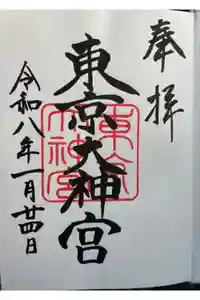 奉拝
東京大神宮
東京大神宮
令和八年一月廿四日